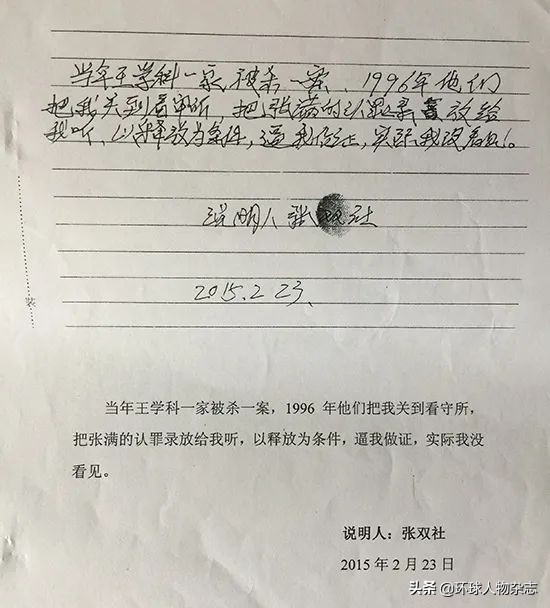 当年王学科一家被杀一案、1996年他们
把我关到看守所 把张满的认罪录音放给
我听、以释放为条件，逼我作证，实际我没看见。
说明人 张双社
2015.2 23、
装
当年王学科一家被杀一案，1996 年他们把我关到看守所，
把张满的认罪录放给我听，以释放为条件，逼我做证，实际我没
看见。
说明人：张双社
2015 年 2 月 23 日
头条 @环球人物杂志